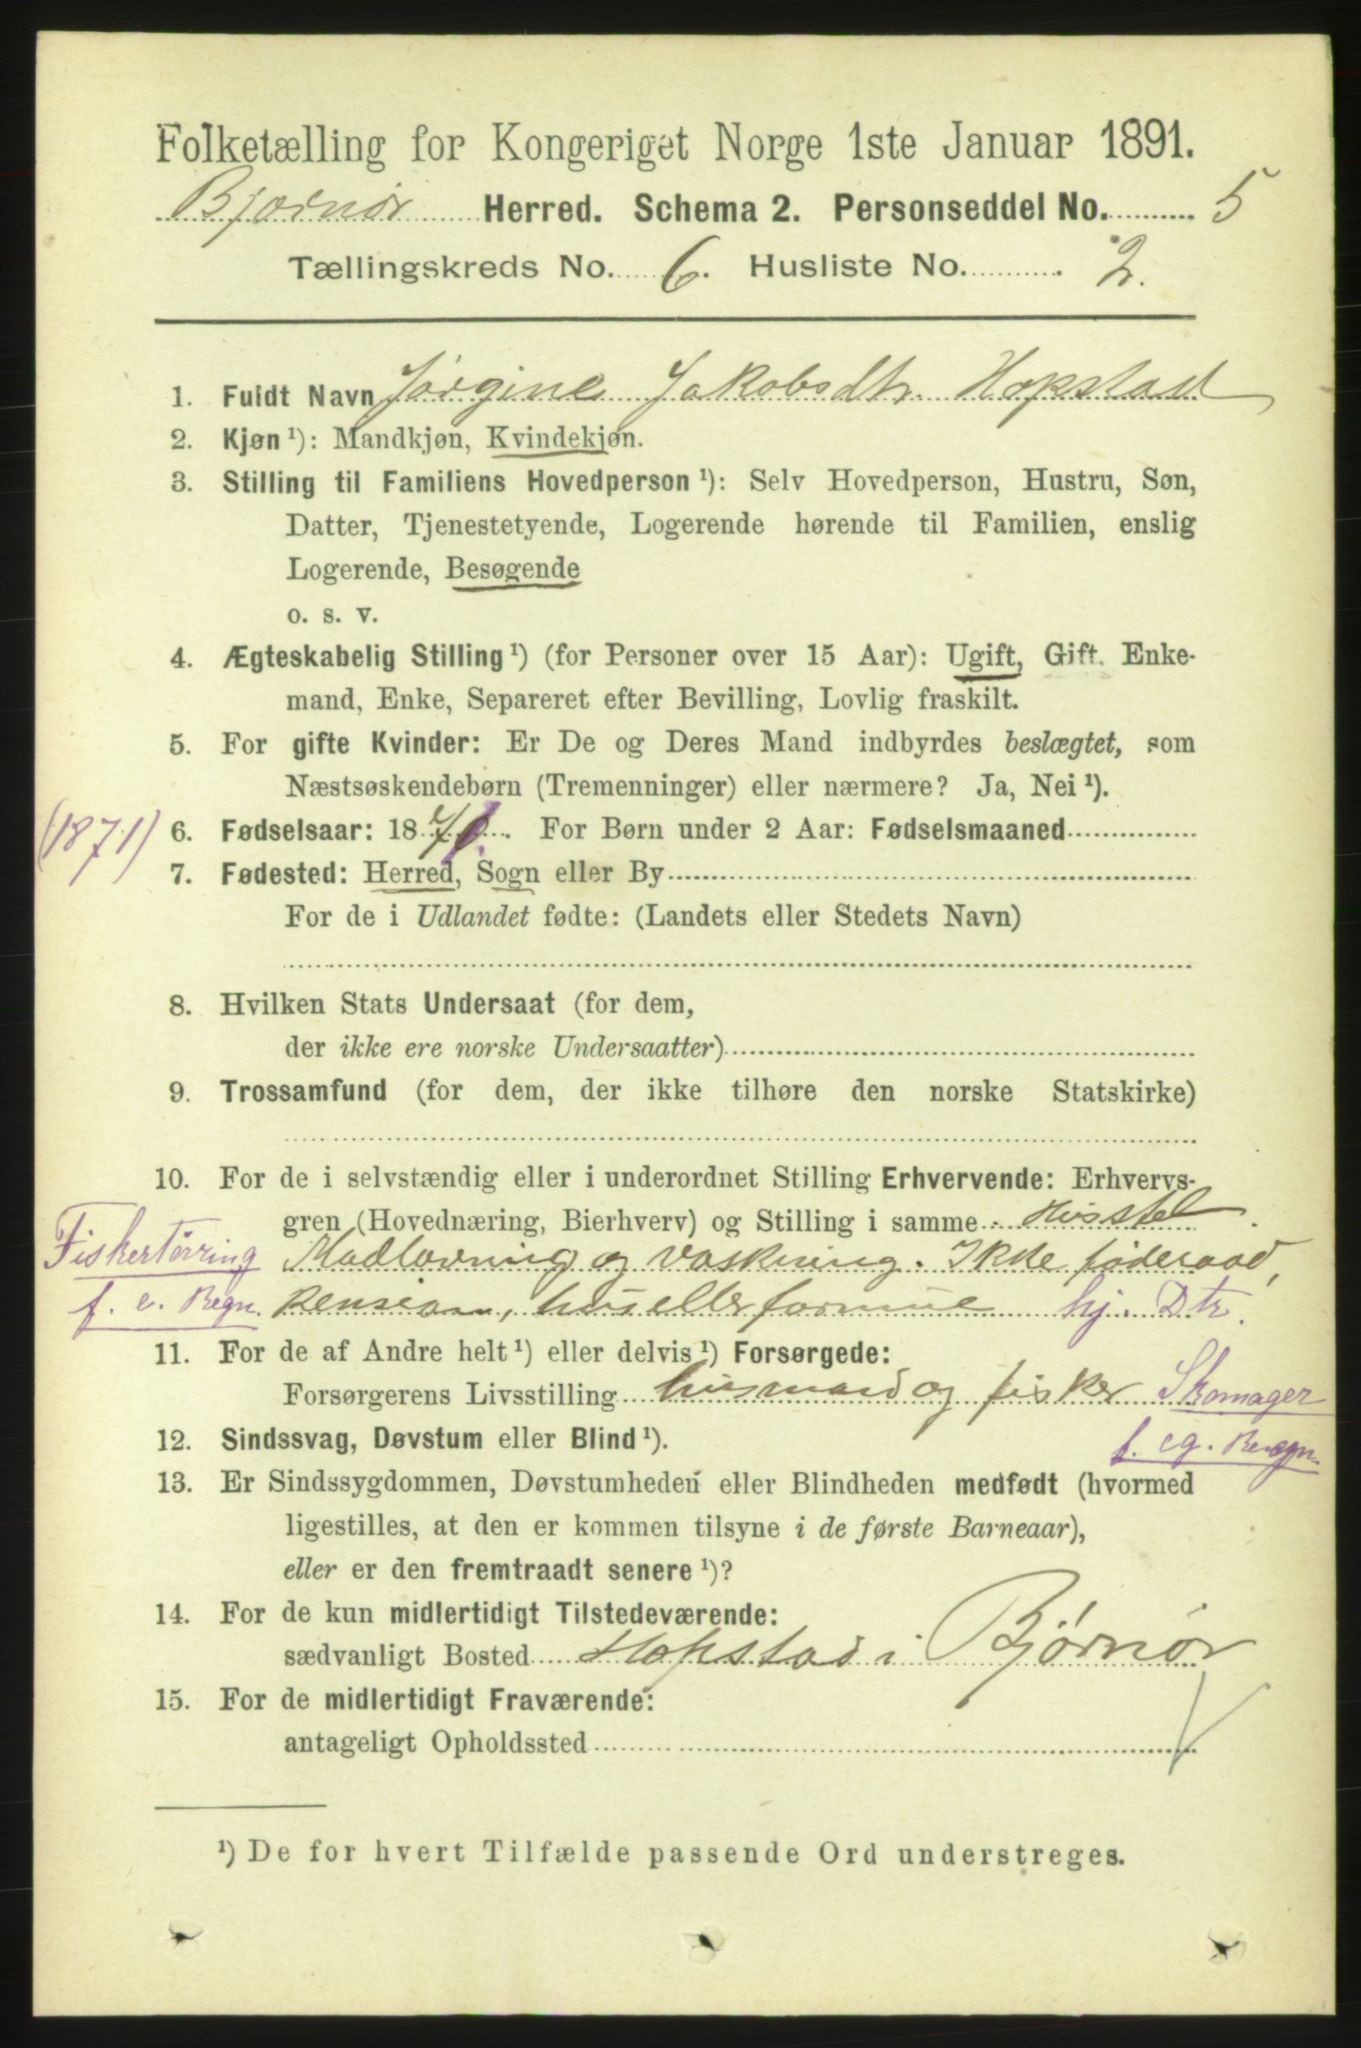 Folketælling for Kongeriget Norge 1ste Januar 1891.
Bjørnør Herred. Schema 2. Personseddel No. 5
Tællingskreds No. 6. Husliste No. 2.
1. Fuldt Navn Jørgine Jakobsdtr. Hopstad
2. Kjøn ¹): Mandkjøn, Kvindekjøn.
3. Stilling til Familiens Hovedperson ¹): Selv Hovedperson, Hustru, Søn,
Datter, Tjenestetyende, Logerende hørende til Familien, enslig
Logerende, Besøgende
o. s. v.
4. Ægteskabelig Stilling ¹) (for Personer over 15 Aar): Ugift, Gift. Enke-
mand, Enke, Separeret efter Bevilling, Lovlig fraskilt.
5. For gifte Kvinder: Er De og Deres Mand indbyrdes beslægtet, som
Næstsøskendebørn (Tremenninger) eller nærmere? Ja, Nei ¹).
(1871) 6. Fødselsaar: 187 . For Børn under 2 Aar: Fødselsmaaned
7. Fødested: Herred, Sogn eller By
For de i Udlandet fødte: (Landets eller Stedets Navn)
8. Hvilken Stats Undersaat (for dem,
der ikke ere norske Undersaatter)
9. Trossamfund (for dem, der ikke tilhøre den norske Statskirke)
10. For de i selvstændig eller i underordnet Stilling Erhvervende: Erhvervs-
gren (Hovednæring, Bierhverv) og Stilling i samme Husstel
Fiskertørring Madlavning og vaskning. Ikke føderaad,
f. e. Regn. Pension, hus eller formue hj. Dtr.
11. For de af Andre helt ¹) eller delvis ¹) Forsørgede:
Forsørgerens Livsstilling husmand og fisker Skomager
f. eg. Regn.
12. Sindssvag, Døvstum eller Blind ¹).
13. Er Sindssygdommen, Døvstumheden eller Blindheden medfødt (hvormed
ligestilles, at den er kommen tilsyne i de første Barneaar),
eller er den fremtraadt senere ¹)?
14. For de kun midlertidigt Tilstedeværende:
sædvanligt Bosted Hopstad i Bjørnør
15. For de midlertidigt Fraværende:
antageligt Opholdssted
¹) De for hvert Tilfælde passende Ord understreges.